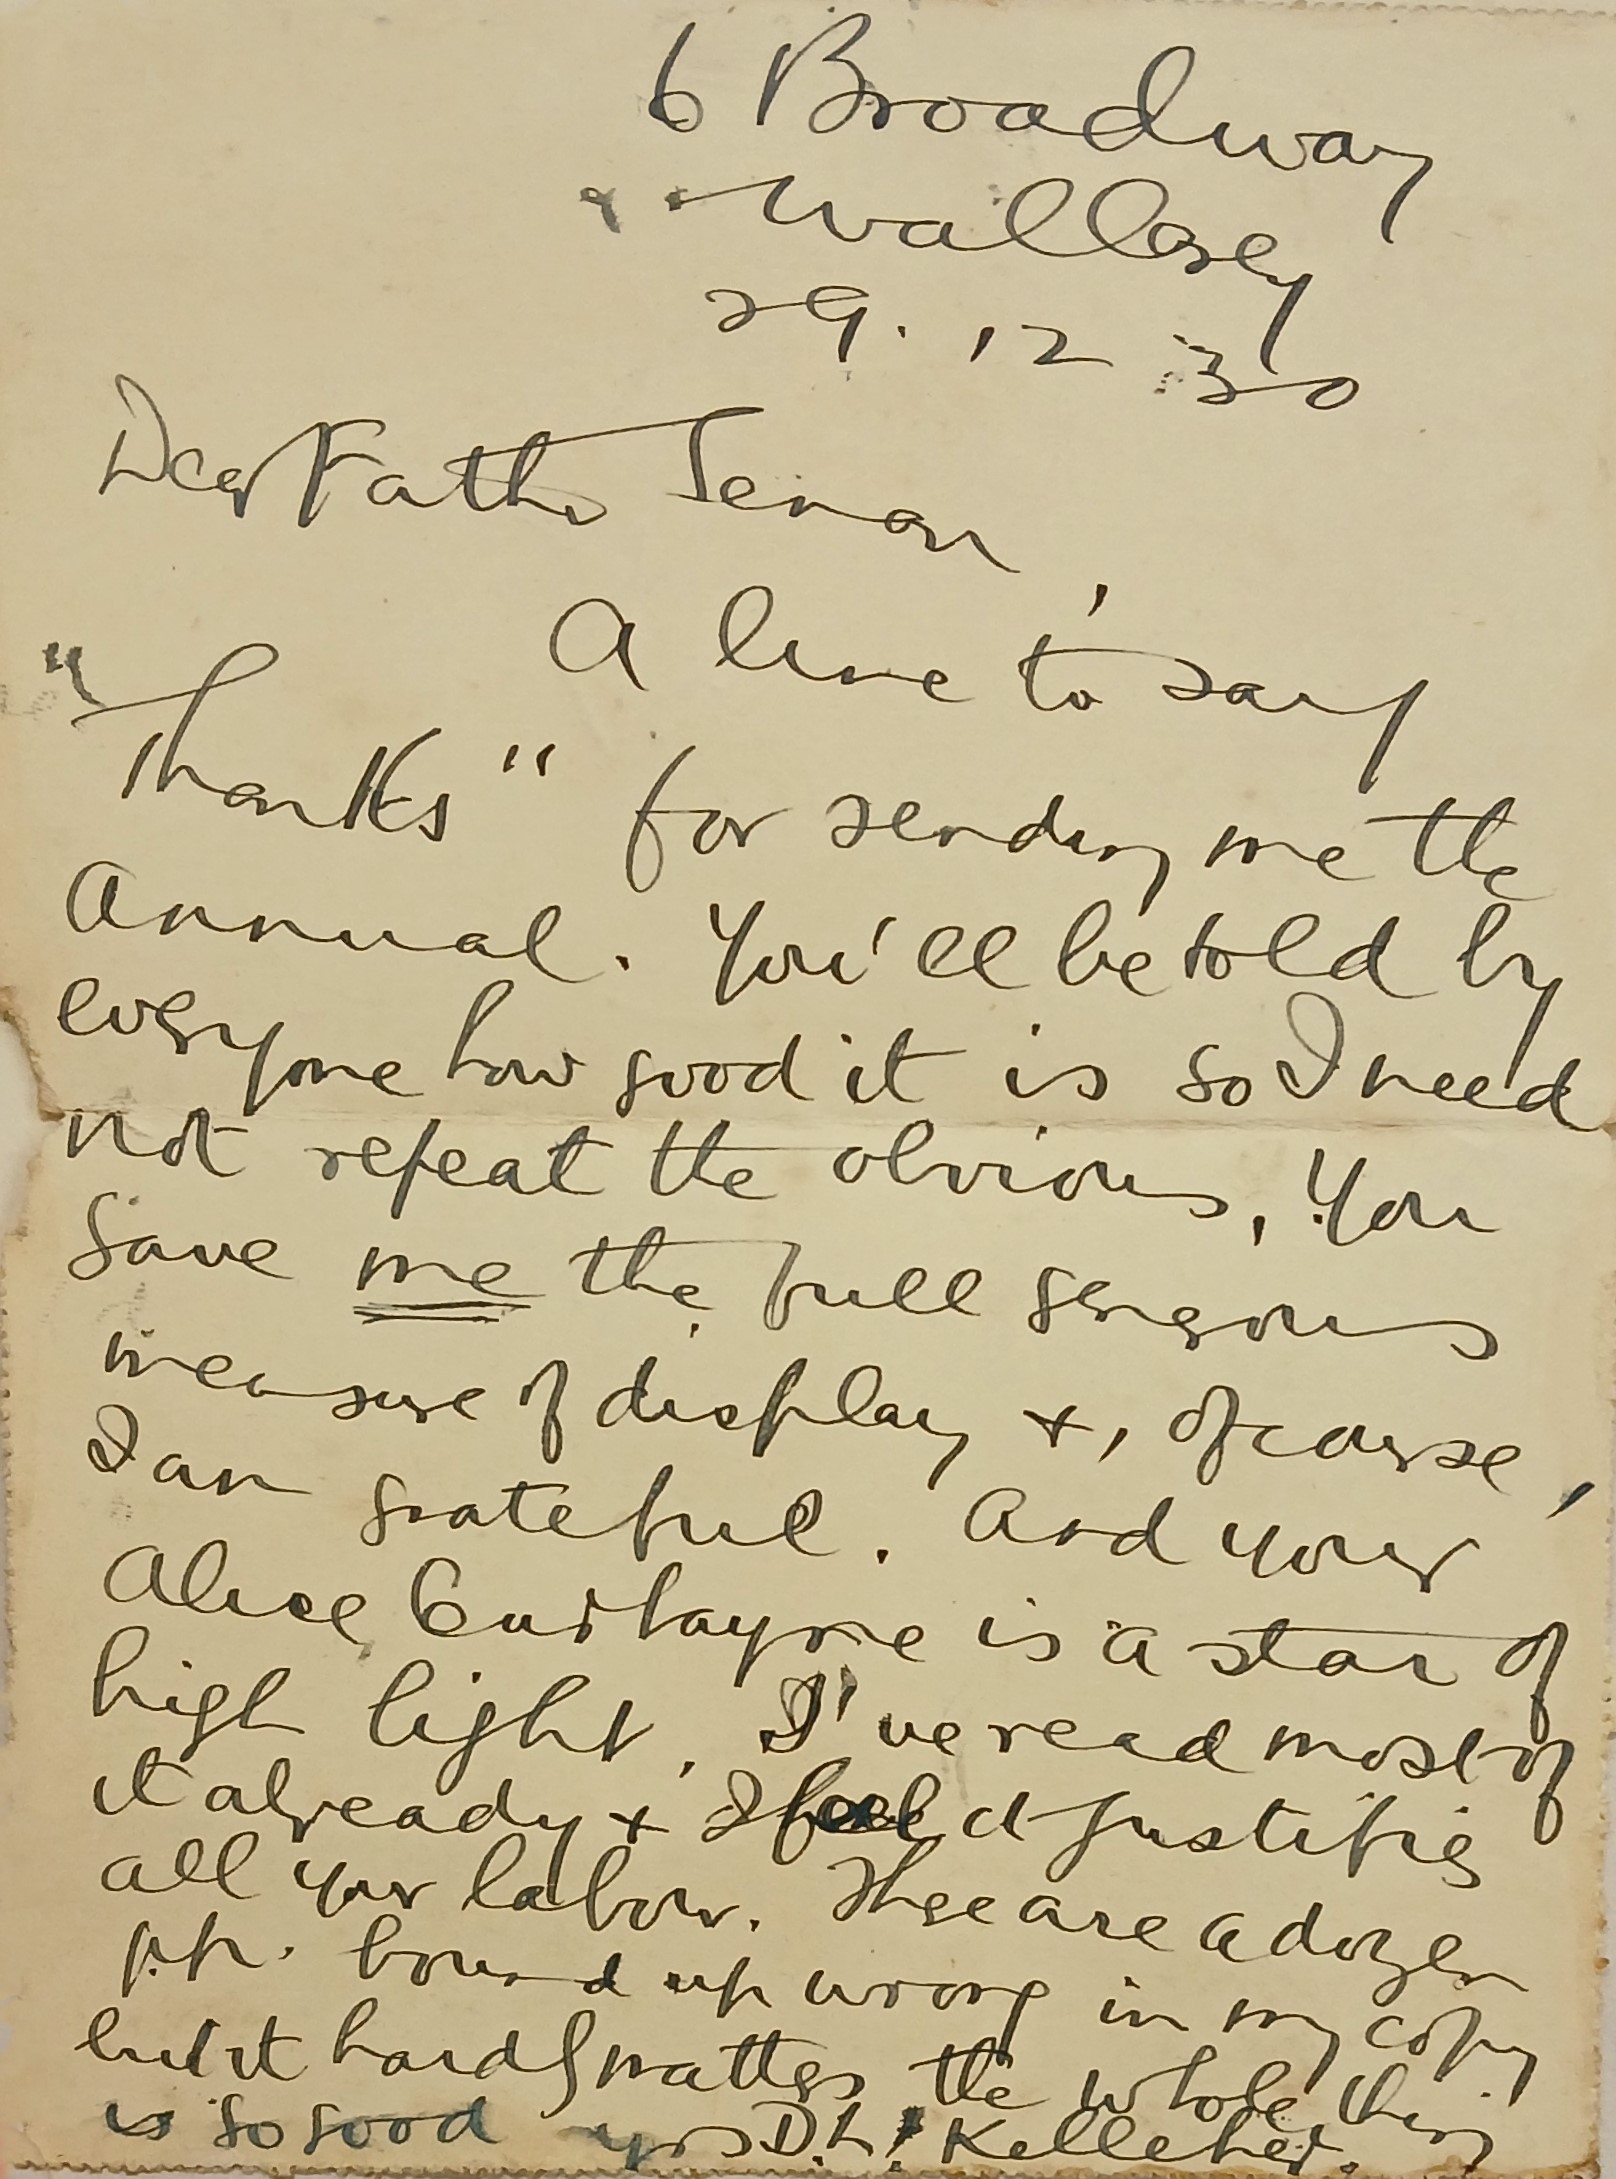 6 Broadway
Wallasey
29. 12 30
Dear Father Senan,
A line to say
"Thanks" for sending me the
Annual. You'll be told by
everyone how good it is so I need
not repeat the obvious. You
gave me the full generous
measure of display +, of course,
I am grateful. And your
Alice Curtayne is a star of
high light. I've read most of
it already + I feel it justifies
all your labour. There are a dozen
p.p. bound up wrong in my copy
but it hardly matters the whole thing
is so good yrs D. L. Kelleher.